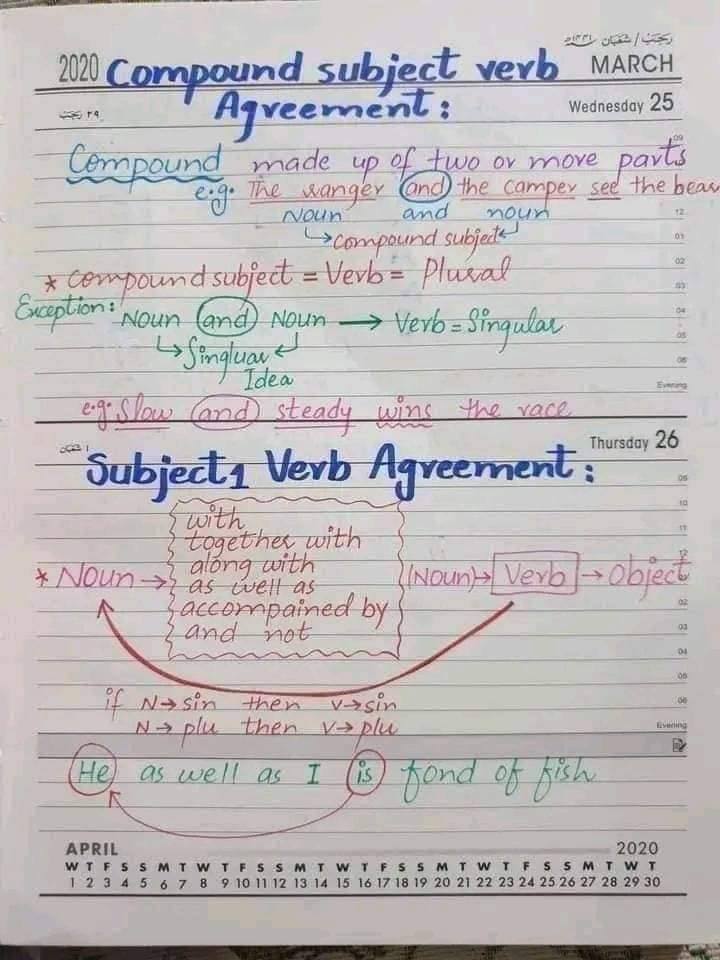 رجب / شعبان ١٤٤١هـ
2020 Compound subject verb MARCH
Agreement :
٢٩ رجب
Wednesday 25
09
Compound made up of two or more parts
e.g. The ranger (and) the camper see the bear
Noun and noun
12
→compound subject←
01
02
* compound subject = Verb = Plural
03
Exception: Noun (and) Noun → Verb = Singular
04
05
↳Singluar↲
06
Idea
Evening
e.g: Slow (and) steady wins the race
١ شعبان
Thursday 26
Subject1 Verb Agreement :
09
with
10
together with
11
along with
12
* Noun → as well as (Noun)→ Verb → Object
accompained by
02
and not
03
04
05
if N→sin then v→sin
06
N→ plu then v→ plu
Evening
He as well as I is fond of fish
APRIL 2020
W T F S S M T W T F S S M T W T F S S M T W T F S S M T W T
1 2 3 4 5 6 7 8 9 10 11 12 13 14 15 16 17 18 19 20 21 22 23 24 25 26 27 28 29 30